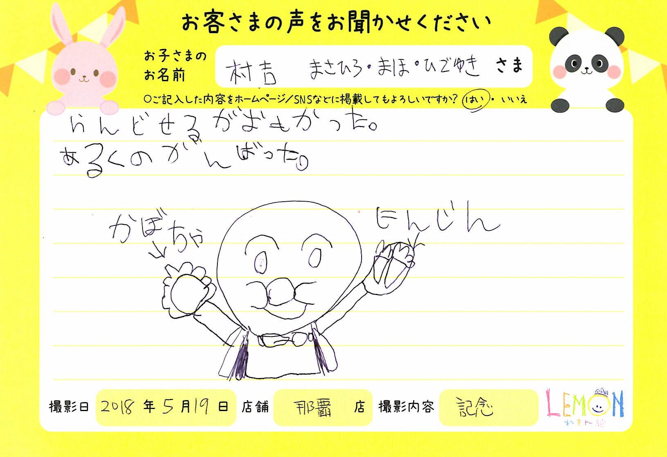 お客さまの声をお聞かせください
お子さまの
お名前
村吉 まさひろ・まほ・ひでゆき さま
○ご記入した内容をホームページ/SNSなどに掲載してもよろしいですか? はい・いいえ
らんどせるがおもかった。
あるくのがんばった。
かぼちゃ
にんじん
撮影日 2018 年 5 月 19 日 店舗 那覇 店 撮影内容 記念
LEMON